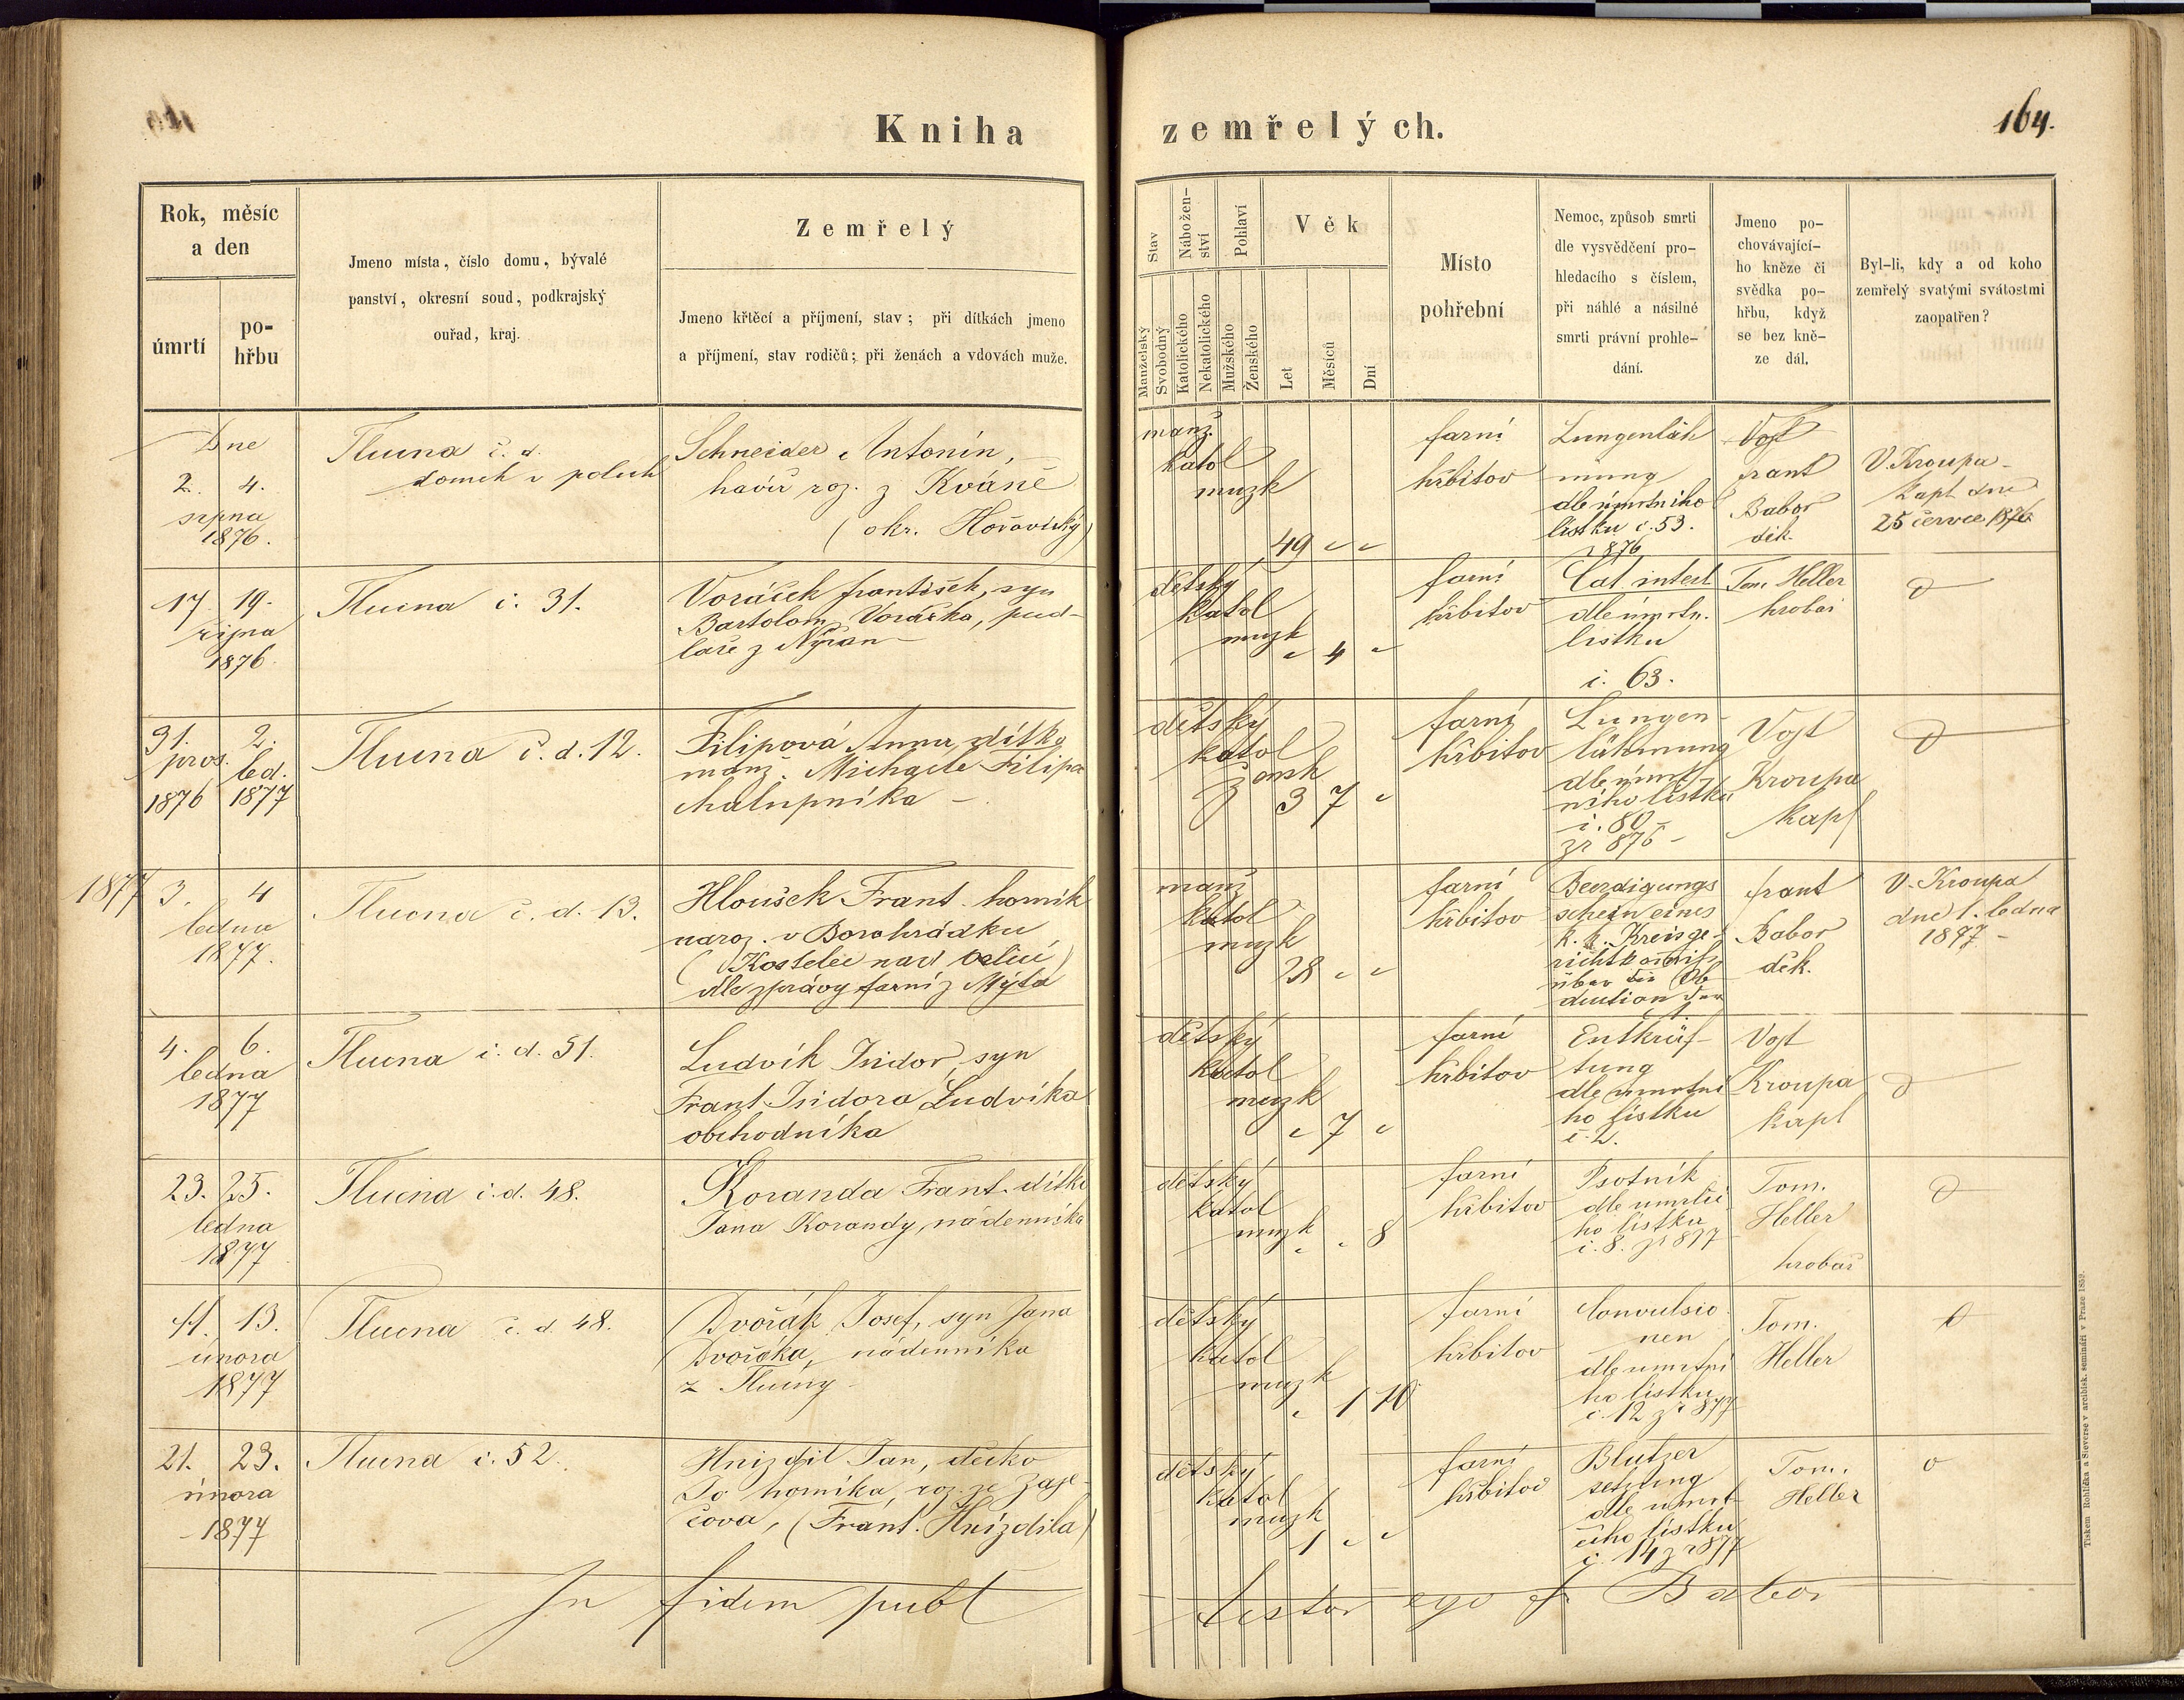 Kniha zemřelých.
164.
Rok, měsíc
a den
úmrtí
po-
hřbu
Jmeno místa, číslo domu, bývalé
panství, okresní soud, podkrajský
ouřad, kraj.
Zemřelý
Jmeno křtěcí a příjmení, stav; při dítkách jmeno
a příjmení, stav rodičů; při ženách a vdovách muže.
Stav
Manželský
Svobodný
Nábožen-
ství
Katolického
Nekatolického
Pohlaví
Mužského
Ženského
Věk
Let
Měsíců
Dní
Místo
pohřební
Nemoc, způsob smrti
dle vysvědčení pro-
hledacího s číslem,
při náhlé a násilné
smrti právní prohle-
dání.
Jmeno po-
chovávající-
ho kněze či
svědka po-
hřbu, když
se bez kně-
ze dál.
Byl-li, kdy a od koho
zemřelý svatými svátostmi
zaopatřen?
Dne
2. 4.
srpna
1876.
Tlucna č. d.
domek v polích
Schneider Antonín,
havíř roz. z Kváně
(okr. Hořovický)
manž.
katol
muzk
49 " "
farní
hřbitov
Lungenläh
mung
dle úmrtního
lístku č. 53.
1876
Vojt
frant
Babor
děk.
V. Kroupa
kapl dne
25 července 1876
17. 19.
října
1876.
Tlucna č. 31.
Voráček františek, syn
Bartolom. Voráčka, pud-
láře z Nýřan
dětský
katol
muzk
" 4 "
farní
hřbitov
Cat. intest
dle úmrtn.
lístku
č. 63.
Tom. Heller
hrobař
31. 2.
pros. led.
1876 1877
Tlucna č. d. 12.
Filipová Anna, dítko
manž. Michaele Filipa
chalupníka
dětský
katol
žensk
3 7 "
farní
hřbitov
Lungen-
lähmung
dle úmrt-
ního lístku
č. 80
zr 876
Vojt
Kroupa
kapl
1877
3. 4
ledna
1877.
Tlucna č. d. 13.
Hloušek Frant. horník
naroz. v Borohrádku
(Kostelec nad Orlicí)
dle zprávy farní z Mýta
manž
katol
muzk
28 " "
farní
hřbitov
Beerdigungs
schein eines
k. k. Kreisge-
über die Ob
duction
frant
Babor
děk.
V. Kroupa
dne 1. ledna
1877
4. 6.
ledna
1877
Tlucna č. d. 51.
Ludvík Isidor, syn
Frant. Isidora Ludvíka
obchodníka
dětský
katol
muzk
" 7 "
farní
hřbitov
Entkräf-
tung
dle úmrtní
ho lístku
č. 2.
Vojt
Kroupa
kapl
23. 25.
ledna
1877
Tlucna č. d. 48.
Koranda Frant. dítko
Jana Korandy, nádenníka
dětský
katol
muzk
" " 8
farní
hřbitov
Psotník
dle umrlčí
ho lístku
č. 8. zr 877
Tom.
Heller
hrobař
11. 13.
února
1877
Tlucna č. d. 48.
Dvořák Josef, syn Jana
Dvořáka, nádenníka
z Tlucny
dětský
katol
muzk
" 1 10
farní
hřbitov
Convulsio
nen
dle umrtní
ho lístku
č. 12 zr 877
Tom.
Heller
21. 23.
února
1877
Tlucna č. 52.
Hnizdil Jan, děcko
horníka, roz. ze Zaje-
čova, (Frant. Hnízdila)
dětský
katol
muzk
1 " "
farní
hřbitov
Blutzer
setzung
dle umrl
čího lístku
č. 14 z r 877
Tom.
Heller
o
In fidem publ
testor ego f. Babor
Tiskem Rohlíčka a Sieverse v arcibisk. semináři v Praze 1852.